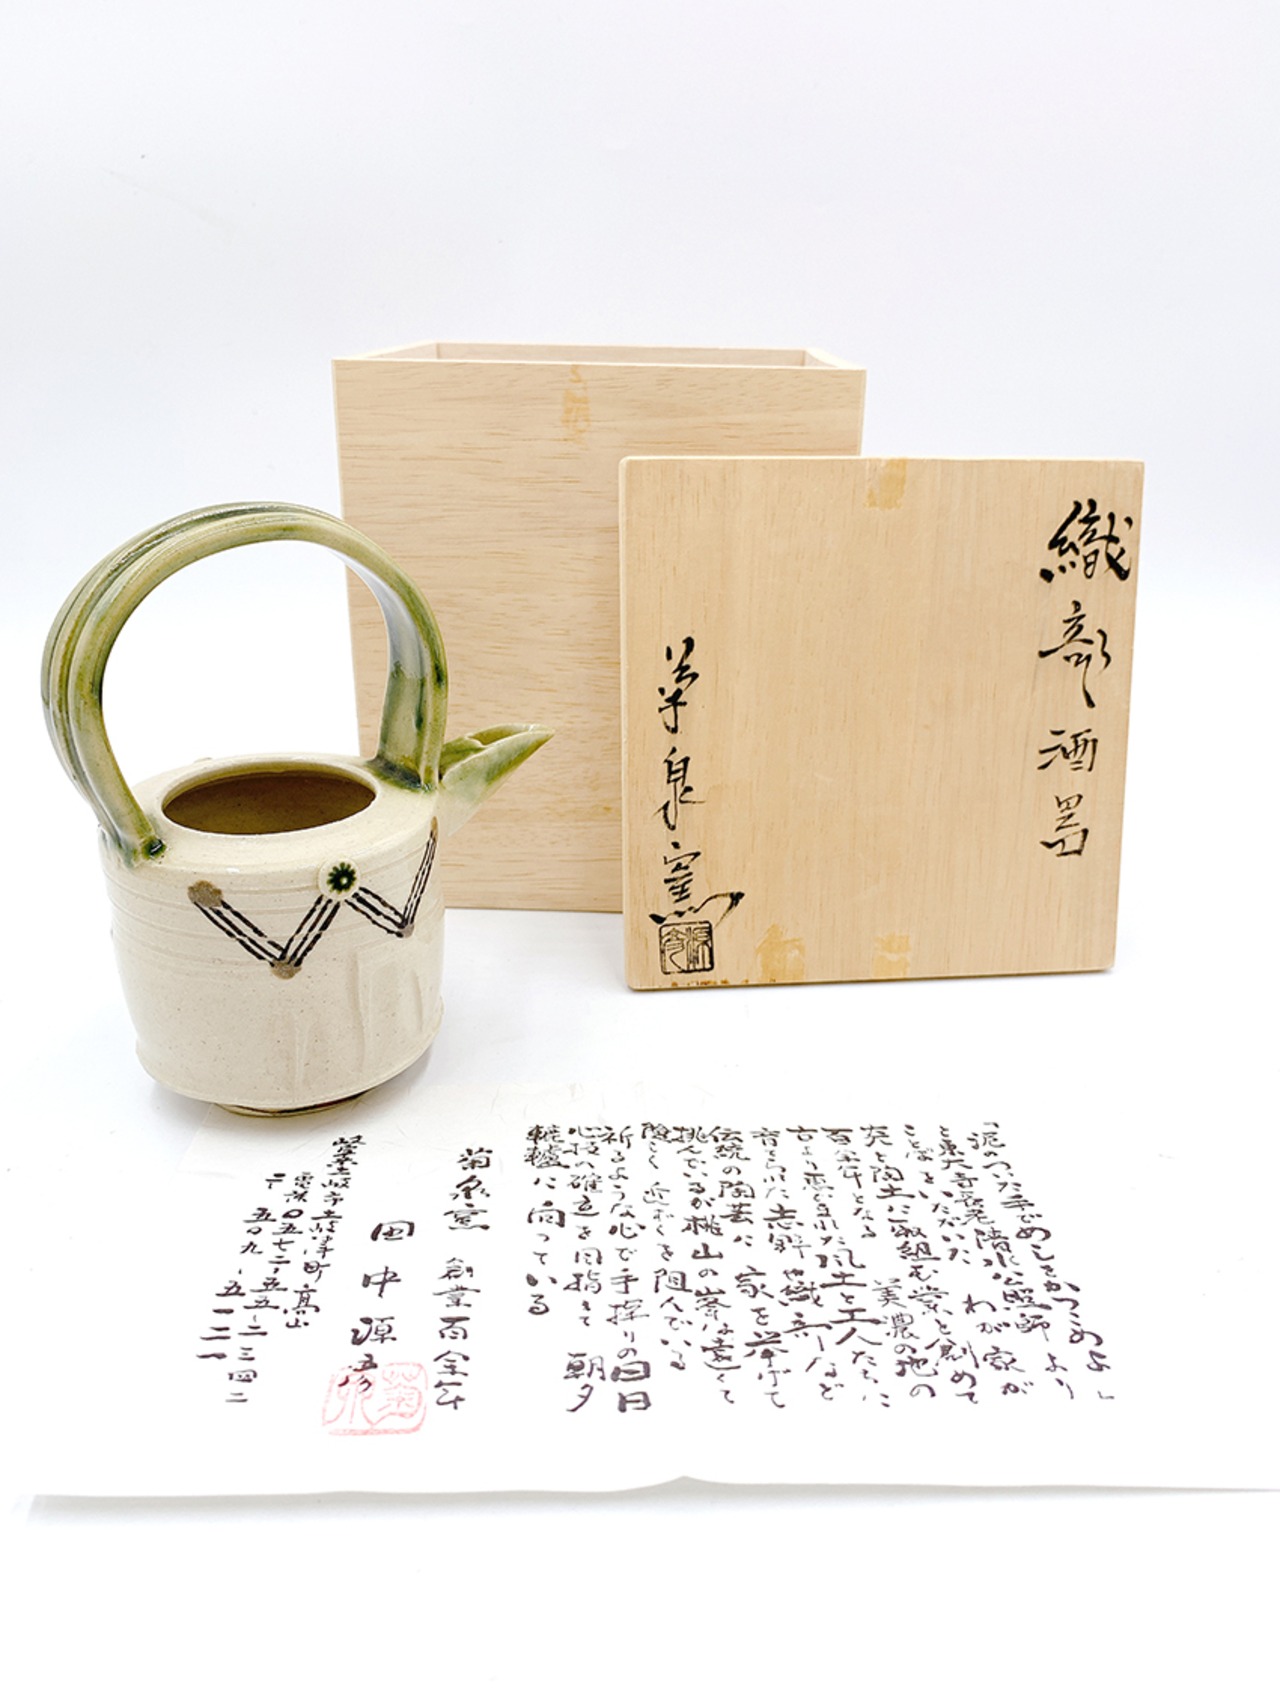 織部酒器
菊泉窯
「泥のついた手でめしをかっこめよ」
と東大寺長老清水公照師より
ことばをいただいた わが家が
炎と陶土に取組む業を創めて
百余年となる 美濃の地の
古より恵まれた風土と工人たちに
育てられた志野や織部など
伝統の陶芸に 家を挙げて
挑んでいるが桃山の峯は遠くて
険しく 近ずくを阻んでいる
祈るような心で手探りの日日
心技の確立を目指して 朝夕
轆轤に向っている
菊泉窯 創業百余年
田中源彦
岐阜県土岐市土岐津町高山
電話〇五七二-五五-二三四二
〒五〇九-五一二一